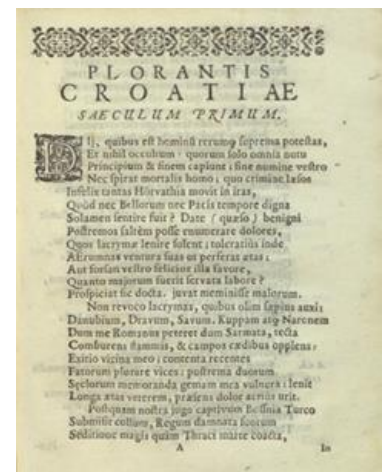 PLORANTIS
CROATIAE
SAECULUM PRIMUM.
DIj, quibus est hominũ rerumq́ suprema potestas,
Et nihil occultum: quorum solo omnia nutu
Principium & finem capiunt; sine numine vestro
Nec spirat mortalis homo; quo crimine læsos
Infelix tantas Horvathia movit in iras,
Quòd nec Bellorum nec Pacis tempore digna
Solamen sentire fuit? Date (quæso) benigni
Postremos saltèm posse enumerare dolores,
Quos lacrymæ lenire solent; toleratiùs inde
AErumnas ventura suas ut perferat ætas:
Aut forsan vestro felicior illa favore,
Quanto majorum fueris servata labore?
Prospiciat sic docta. juvat meminisse malorum.
Non revoco lacrymas, quibus olim sæpius auxi;
Danubium, Dravum, Savum, Kuppam atq́ Narenem
Dum me Romanus peteret dum Sarmata, tecta
Comburens flammis, & campos cædibus opplens;
Exitio vicina meo: contenta recentes
Fatorum plorare vices: postrema duorum
Sęclorum memoranda gemam mea vulnera: lenit
Longa ætas veterem, præsens dolor acriùs urit.
Postquam nostra jugo captivum Bosnia Turco
Submisit collum, Regum damnata suorum
Seditione magis quàm Thraci marte coacta,
A
In